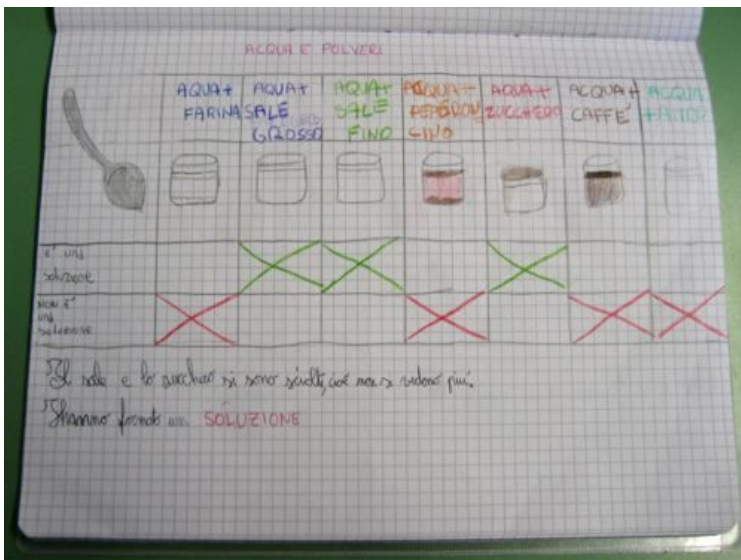 ACQUA E POLVERI
AQUA+ FARINA
AQUA+ SALE GROSSO
AQUA+ SALE FINO
ACQUA+ PEPERON CINO
AQUA+ ZUCCHERO
ACQUA+ CAFFÉ
ACQUA
È UNA
soluzione
NON È
UNA
soluzione
Il sale e lo zucchero si sono sciolti, cioè non si vedono più.
Hanno formato una SOLUZIONE